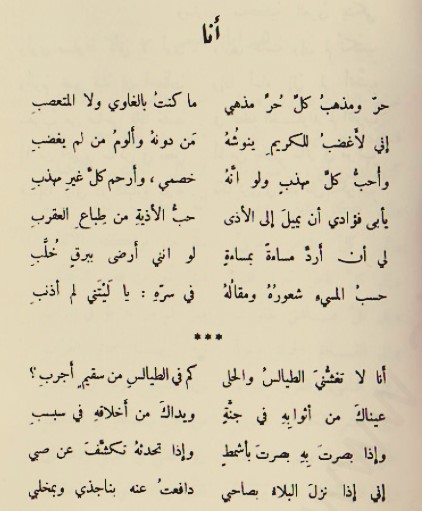 أنا
حرّ ومذهبُ كلِّ حُرٍّ مذهبي ما كنتُ بالغاوي ولا المتعصبِ
إني لأغضبُ للكريمِ ينوشُهُ مَن دونهُ وألومُ من لم يغضبِ
وأحبُّ كلَّ مهذبٍ ولو انَّهُ خصمي ، وأرحم كلَّ غيرِ مهذبِ
يأبى فؤادي أن يميلَ إلى الأذى حبُّ الأذيةِ من طِباعِ العقربِ
لي أن أردَّ مساءةً بمساءةٍ لو انني أرضى ببرقٍ خُلَّبِ
حسبُ المسيءِ شعورُهُ ومقالُهُ في سرّهِ : يا لَيْتَني لم أذنبِ
***
أنا لا تغشُّنيَ الطيالسُ والحلى كم في الطيالسِ من سقيمٍ أجربِ؟
عيناكَ من أثوابِهِ في جنَّةٍ ويداكَ من أخلاقهِ في سبسبِ
وإذا بصرتَ بِهِ بصرتَ بأشمطٍ وإذا تحدثهُ تكشَّفَ عن صبي
إني إذا نزلَ البلاءُ بصاحبي دافعتُ عنه بناجذي وبمخلبي